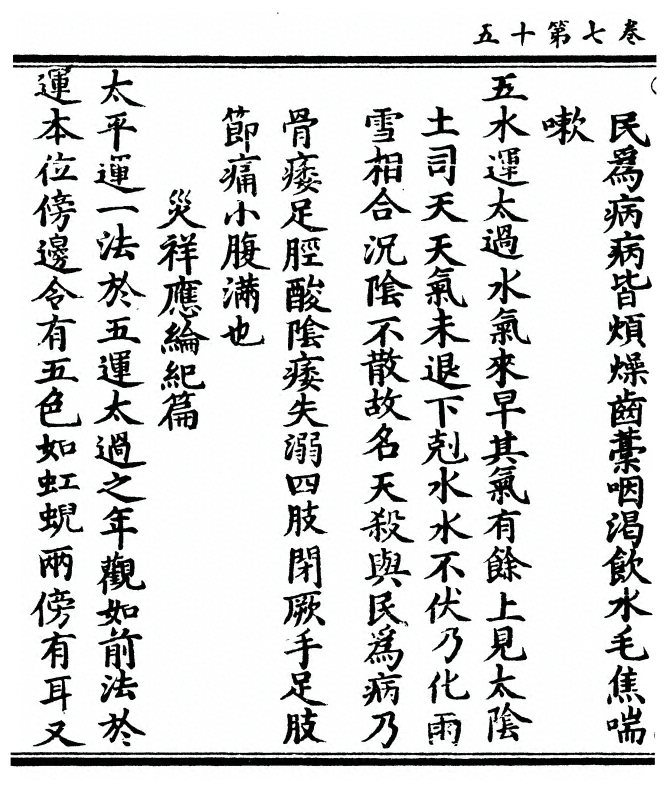 卷七第十五
民爲病病皆煩燥齒藁咽渴飲水毛焦喘
嗽
五水運太過水氣來早其氣有餘上見太陰
土司天天氣未退下剋水水不伏乃化雨
雪相合況陰不散故名天殺與民爲病乃
骨痿足脛酸陰痿失溺四肢閉厥手足肢
節痛小腹滿也
災祥應綸紀篇
太平運一法於五運太過之年觀如前法於
運本位傍邊令有五色如虹蜺兩傍有耳又